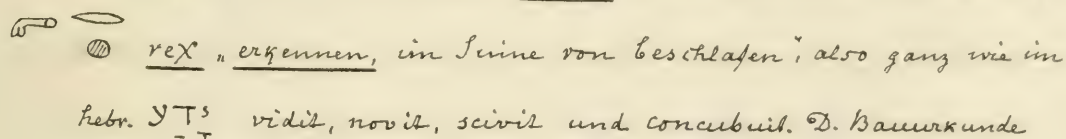 𓂋
𓐍 reχ „erkennen, im Sinne von beschlafen", also ganz wie im
hebr. יָדַע vidit, novit, scivit und concubuit. D. Bauurkunde